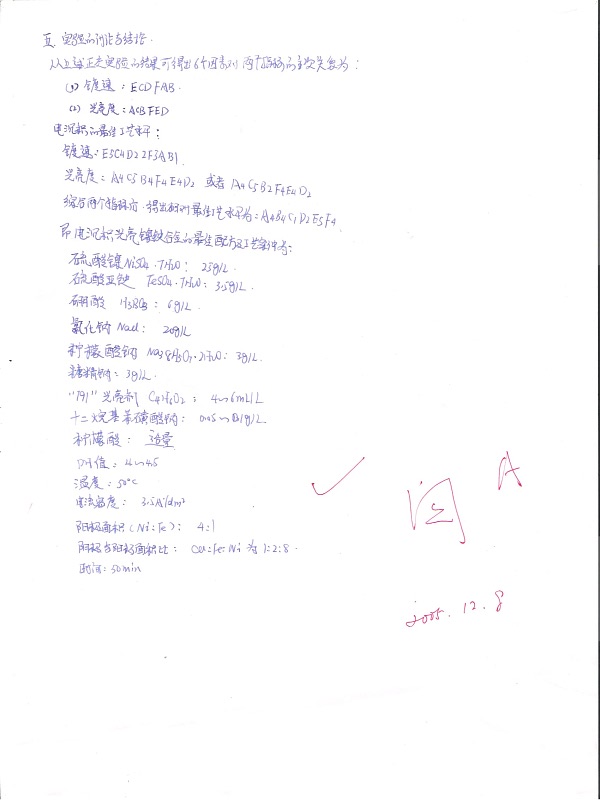 五、实验的讨论与结论.
从上述正交实验的结果可得出6个因素对两个指标的主次关系为:
(1) 镀速: ECDFAB.
(2) 光亮度: ACBFED
电沉积的最佳工艺水平:
镀速: E5C4D2 2F3AB1.
光亮度: A4C5B4F4E4D2 或者 A4C5B2F4E4D2
综合两个指标, 得出最佳工艺水平为: A4B4C1D2E5F4.
即电沉积光亮镍铁合金的最佳配方及工艺条件为:
硫酸镍NiSO4·7H2O: 25g/L
硫酸亚铁 FeSO4·7H2O: 3.5g/L
硼酸 H3BO3: 6g/L
氯化钠 NaCl: 20g/L
柠檬酸钠 2H2O: 3g/L.
糖精钠: 3g/L.
"791"光亮剂 C4H6O2: 4~6mL/L
十二烷基苯磺酸钠: 0.05~0.1g/L.
柠檬酸: 适量
PH值: 4~4.5
温度: 50℃
电流密度: 3.5A/dm²
阳极面积(Ni:Fe): 4:1
阴极与阳极面积比: Cu:Fe:Ni 为 1:2:8.
时间: 50min
阅 A
2005.12.8